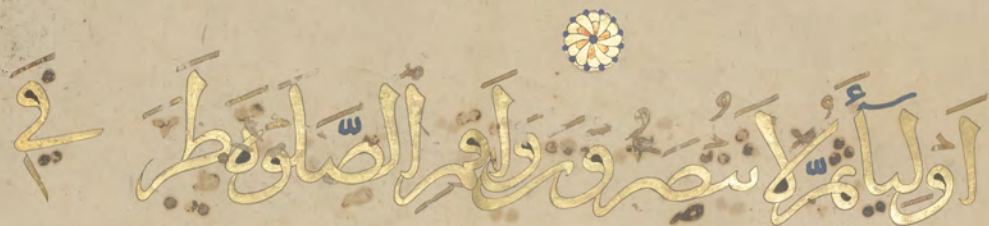 أَوْلِيَآءَ ثُمَّ لَا تُنصَرُونَ وَأَقِمِ ٱلصَّلَوٰةَ طَرَفَيِ